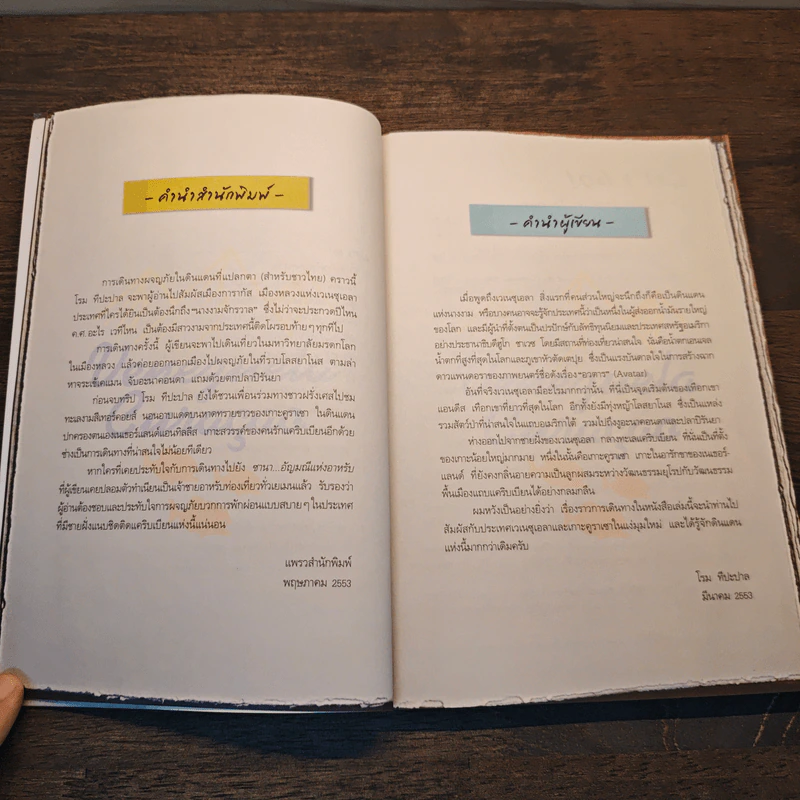 - คำนำสำนักพิมพ์ -
การเดินทางผจญภัยในดินแดนที่แปลกตา (สำหรับชาวไทย) คราวนี้
โรม ทีปะปาล จะพาผู้อ่านไปสัมผัสเมืองการากัส เมืองหลวงแห่งเวเนซุเอลา
ประเทศที่ใครได้ยินเป็นต้องนึกถึง "นางงามจักรวาล" ซึ่งไม่ว่าจะประกวดปีไหน
ค.ศ.อะไร เวทีไหน เป็นต้องมีสาวงามจากประเทศนี้ติดโผรอบท้ายๆ ทุกทีไป
การเดินทางครั้งนี้ ผู้เขียนจะพาไปเดินเที่ยวในมหาวิทยาลัยมรดกโลก
ในเมืองหลวง แล้วค่อยออกนอกเมืองไปผจญภัยที่ราบโลสยาโนส ตามล่า
หาจระเข้เคแมน จับอะนาคอนดา แถมด้วยตกปลาปิรันยา
ก่อนจบทริป โรม ทีปะปาล ยังได้ชวนเพื่อนร่วมทางชาวฝรั่งเศสไปชม
ทะเลงามสีเทอร์คอยส์ นอนอาบแดดบนหาดทรายขาวของเกาะคูราเซา ในดินแดน
ปกครองตนเองเนเธอร์แลนด์แอนทิลลีส เกาะสวรรค์ของคนรักแคริบเบียนอีกด้วย
ช่างเป็นการเดินทางที่น่าสนใจไม่น้อยทีเดียว
หากใครที่เคยประทับใจกับการเดินทางไปยัง ซานา...อัญมณีแห่งอาหรับ
ที่ผู้เขียนเคยปลอมตัวทำเนียนเป็นเจ้าชายอาหรับท่องเที่ยวทั่วเยเมนแล้ว รับรองว่า
ผู้อ่านต้องชอบและประทับใจการผจญภัยบวกการพักผ่อนแบบสบายๆ ในประเทศ
ที่มีชายฝั่งแนบชิดติดแคริบเบียนแห่งนี้แน่นอน
แพรวสำนักพิมพ์
พฤษภาคม 2553
- คำนำผู้เขียน -
เมื่อพูดถึงเวเนซุเอลา สิ่งแรกที่คนส่วนใหญ่จะนึกถึงก็คือเป็นดินแดน
แห่งนางงาม หรือบางคนอาจจะรู้จักประเทศนี้ว่าเป็นหนึ่งในผู้ส่งออกน้ำมันรายใหญ่
ของโลก และมีผู้นำที่ตั้งตนเป็นปรปักษ์กับลัทธิทุนนิยมและประเทศสหรัฐอเมริกา
อย่างประธานาธิบดีฮูโก ชาเวซ โดยมีสถานที่ท่องเที่ยวน่าสนใจ นั่นคือน้ำตกเอนเจล
น้ำตกที่สูงที่สุดในโลก และภูเขาหัวตัดเตปุย ซึ่งเป็นแรงบันดาลใจในการสร้างฉาก
ดาวแพนดอราของภาพยนตร์ชื่อดังเรื่อง "อวตาร" (Avatar)
อันที่จริงเวเนซุเอลามีอะไรมากกว่านั้น ที่นี่เป็นจุดเริ่มต้นของเทือกเขา
แอนดีส เทือกเขาที่ยาวที่สุดในโลก อีกทั้งยังมีทุ่งหญ้าโลสยาโนส ซึ่งเป็นแหล่ง
รวมสัตว์ป่าที่น่าสนใจในแถบอเมริกาใต้ รวมไปถึงอะนาคอนดาและปลาปิรันยา
ห่างออกไปจากชายฝั่งของเวเนซุเอลา กลางทะเลแคริบเบียน ที่นั่นเป็นที่ตั้ง
ของเกาะน้อยใหญ่มากมาย หนึ่งในนั้นคือเกาะคูราเซา เกาะในอารักขาของเนเธอร์-
แลนด์ ที่ยังคงกลิ่นอายความเป็นลูกผสมระหว่างวัฒนธรรมยุโรปกับวัฒนธรรม
พื้นเมืองแถบแคริบเบียนได้อย่างกลมกลืน
ผมหวังเป็นอย่างยิ่งว่า เรื่องราวการเดินทางในหนังสือเล่มนี้จะนำท่านไป
สัมผัสกับประเทศเวเนซุเอลาและเกาะคูราเซาในแง่มุมใหม่ และได้รู้จักดินแดน
แห่งนี้มากกว่าเดิมครับ
โรม ทีปะปาล
มีนาคม 2553